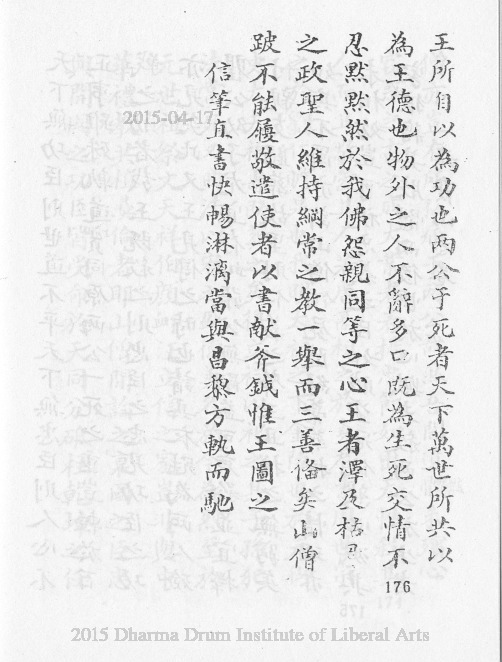 王所自以為功也兩公子死者天下萬世所共以
為王德也物外之人不辭多口既為生死交情不
忍默默然於我佛怨親同等之心王者澤及枯骨
之政聖人維持綱常之教一舉而三善俻矣山僧
跛不能履敬遣使者以書献斧鉞惟王圖之
信筆直書快暢淋漓當與昌黎方軌而馳
176
2015-04-17
2015 Dharma Drum Institute of Liberal Arts